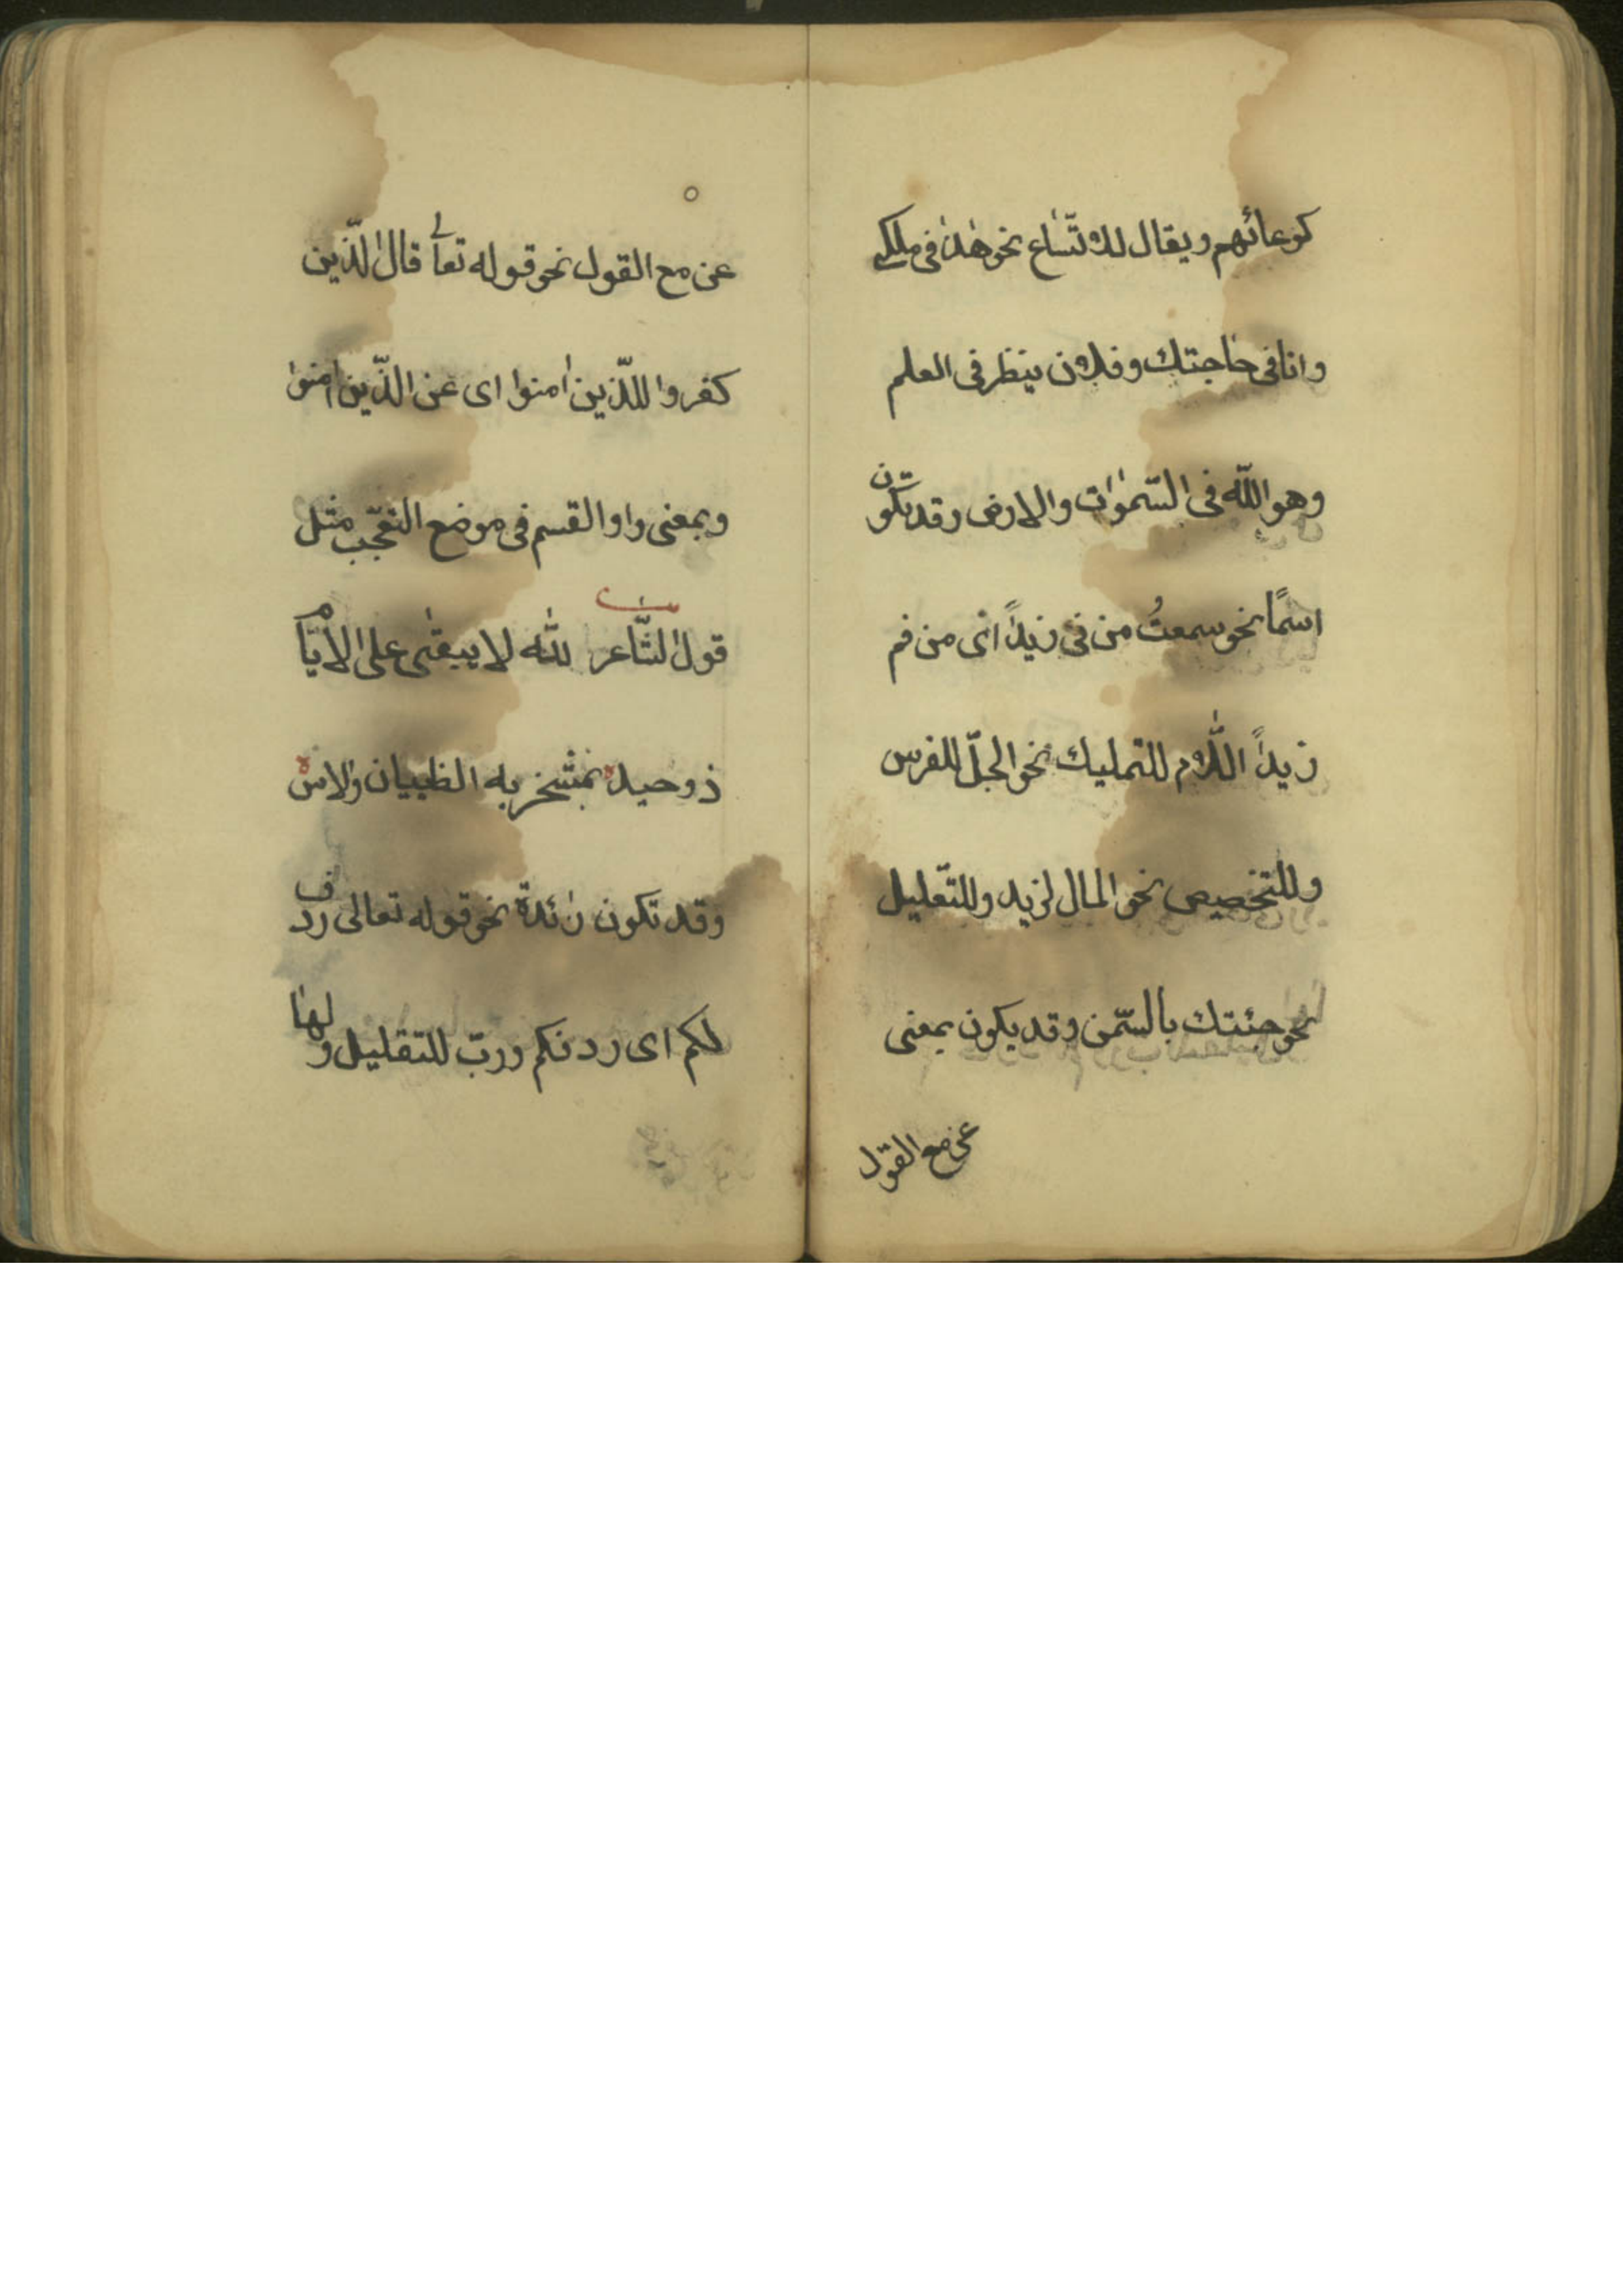 كوعائهم ويقال للاتّساع نحو هذا فى ملكى
وانا فى حاجتك وفلان ينظر فى العلم
وهو اللّه فى السّموات والارض وقد تكون
اسمًا نحو سمعتُ من فى زيدًا اى من فم
زيدًا اللّام للتمليك نحو الجلّ للفرس
وللتخصيص نحو المال لزيد وللتّعليل
نحو جئتك بالسّمن وقد يكون بمعنى
عن مع القول
عن مع القول نحو قوله تعالى قال الّذين
كفروا للّذين امنوا اى عن الّذين امنوا
وبمعنى واو القسم فى موضع التعجّب مثل
قول الشّاعر لله لا يبقى على الايّام
ذو حيد بمشخر به الظييان والاس
وقد تكون زائدة نحو قوله تعالى ردف
لكم اى ردفكم وربّ للتقليل ولها